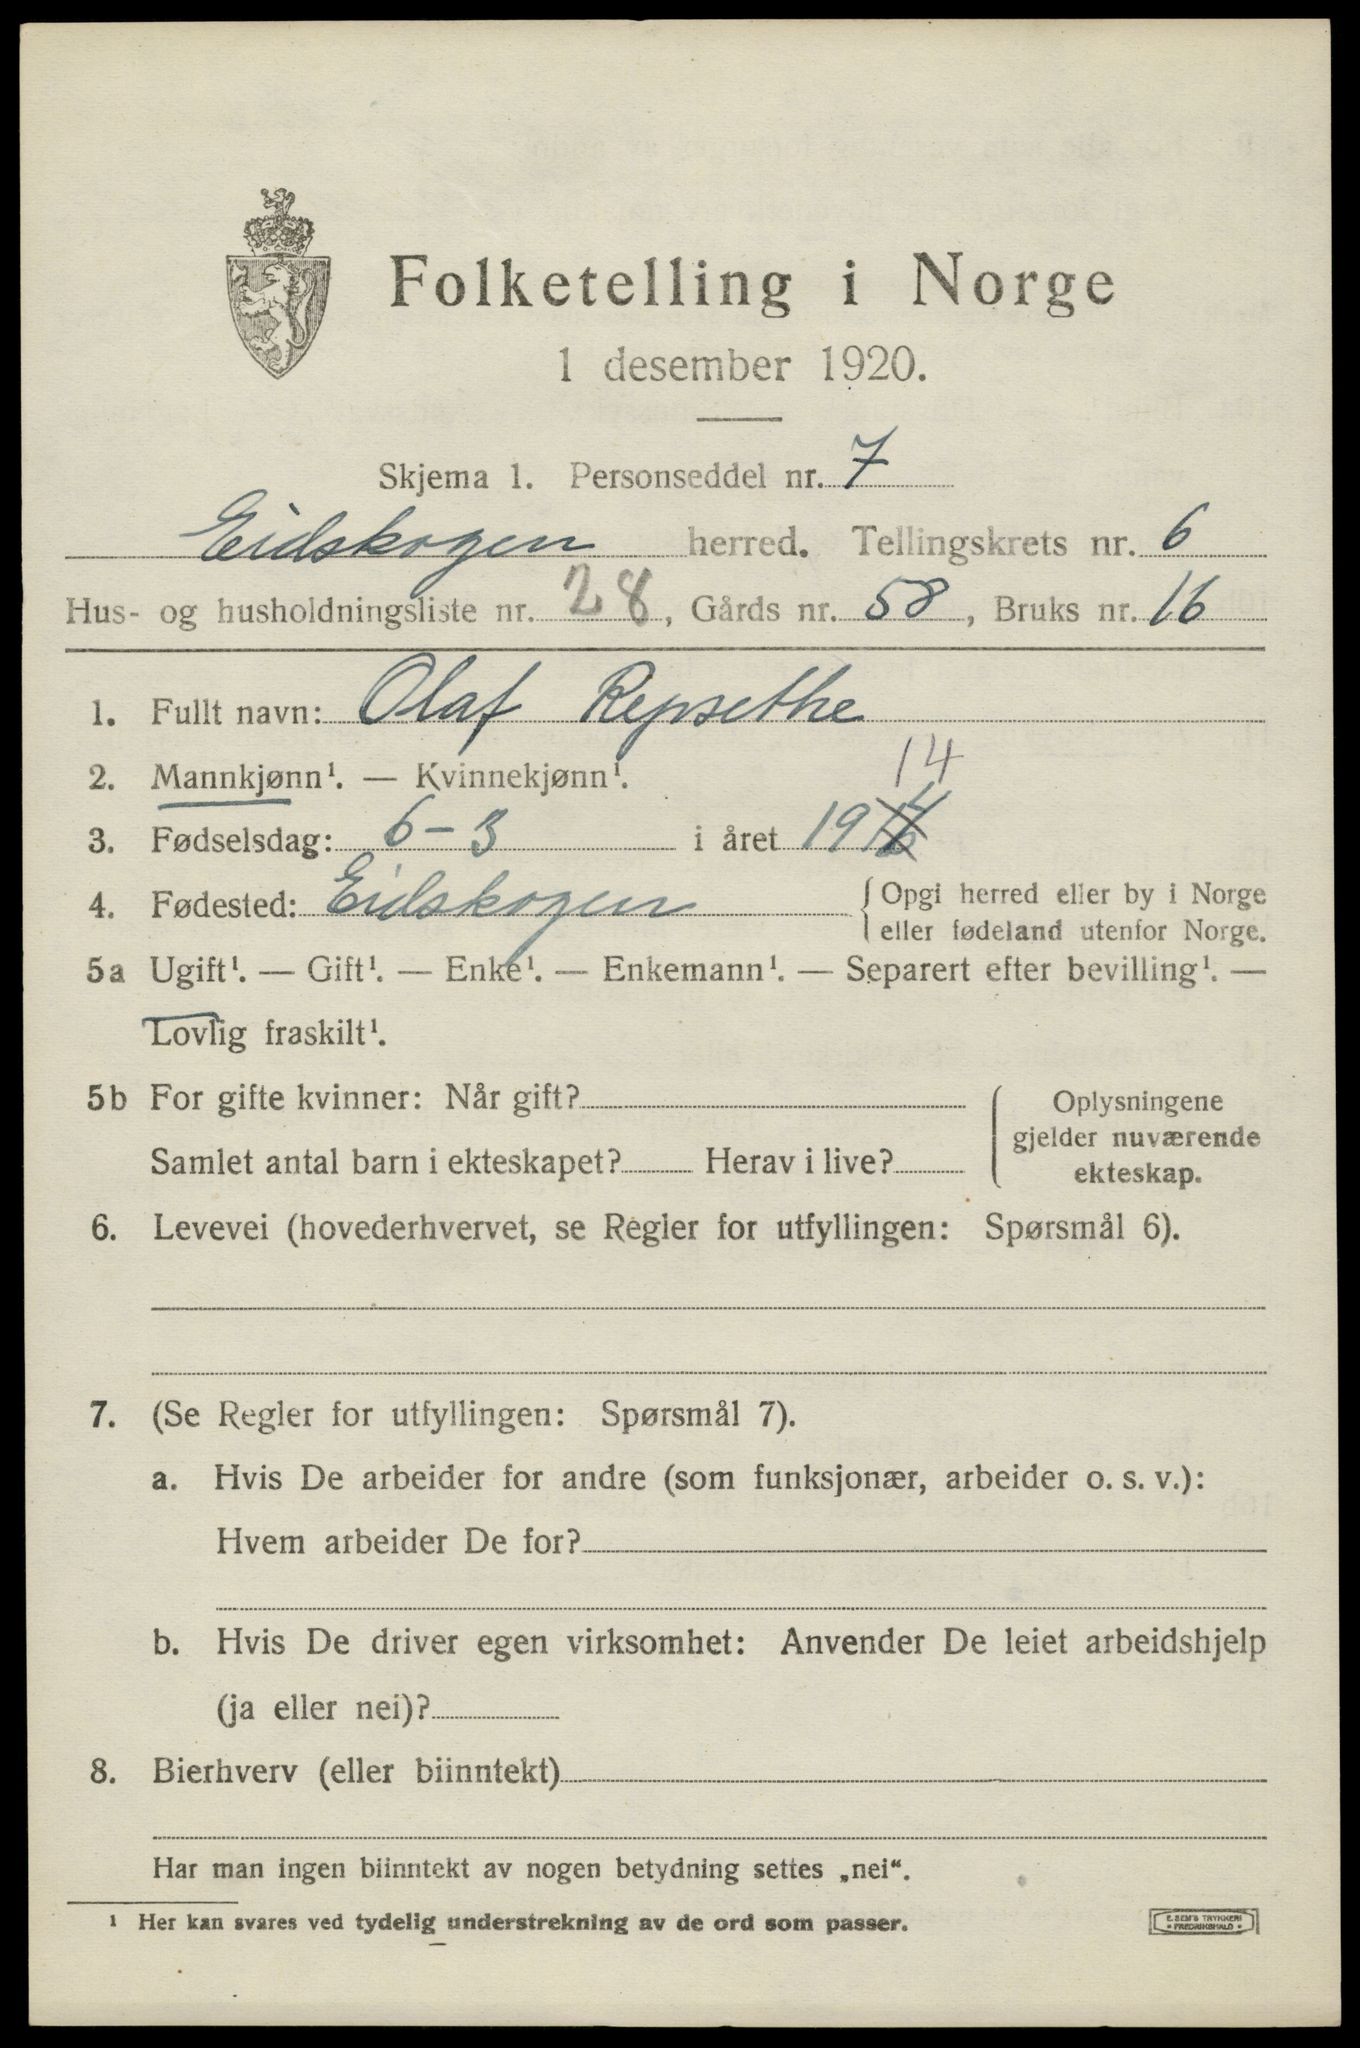 Folketelling i Norge
1 desember 1920.
Skjema 1. Personseddel nr. 7
Eidskogen herred. Tellingskrets nr. 6
Hus- og husholdningsliste nr. 28, Gårds nr. 58, Bruks nr. 16
1. Fullt navn: Olaf Repsethe
2. Mannkjønn¹. — Kvinnekjønn¹.
14
3. Fødselsdag: 6-3 i året 19
4. Fødested: Eidskogen { Opgi herred eller by i Norge
eller fødeland utenfor Norge.
5a Ugift¹. — Gift¹. — Enke¹. — Enkemann¹. — Separert efter bevilling¹. —
Lovlig fraskilt¹.
5b For gifte kvinner: Når gift?
Samlet antal barn i ekteskapet? Herav i live?
Oplysningene
gjelder nuværende
ekteskap.
6. Levevei (hovederhvervet, se Regler for utfyllingen: Spørsmål 6).
7. (Se Regler for utfyllingen: Spørsmål 7).
a. Hvis De arbeider for andre (som funksjonær, arbeider o. s. v.):
Hvem arbeider De for?
b. Hvis De driver egen virksomhet: Anvender De leiet arbeidshjelp
(ja eller nei)?
8. Bierhverv (eller biinntekt)
Har man ingen biinntekt av nogen betydning settes „nei“.
¹ Her kan svares ved tydelig understrekning av de ord som passer.
E. SEM'S TRYKKERI
• FREDRIKSHALD •